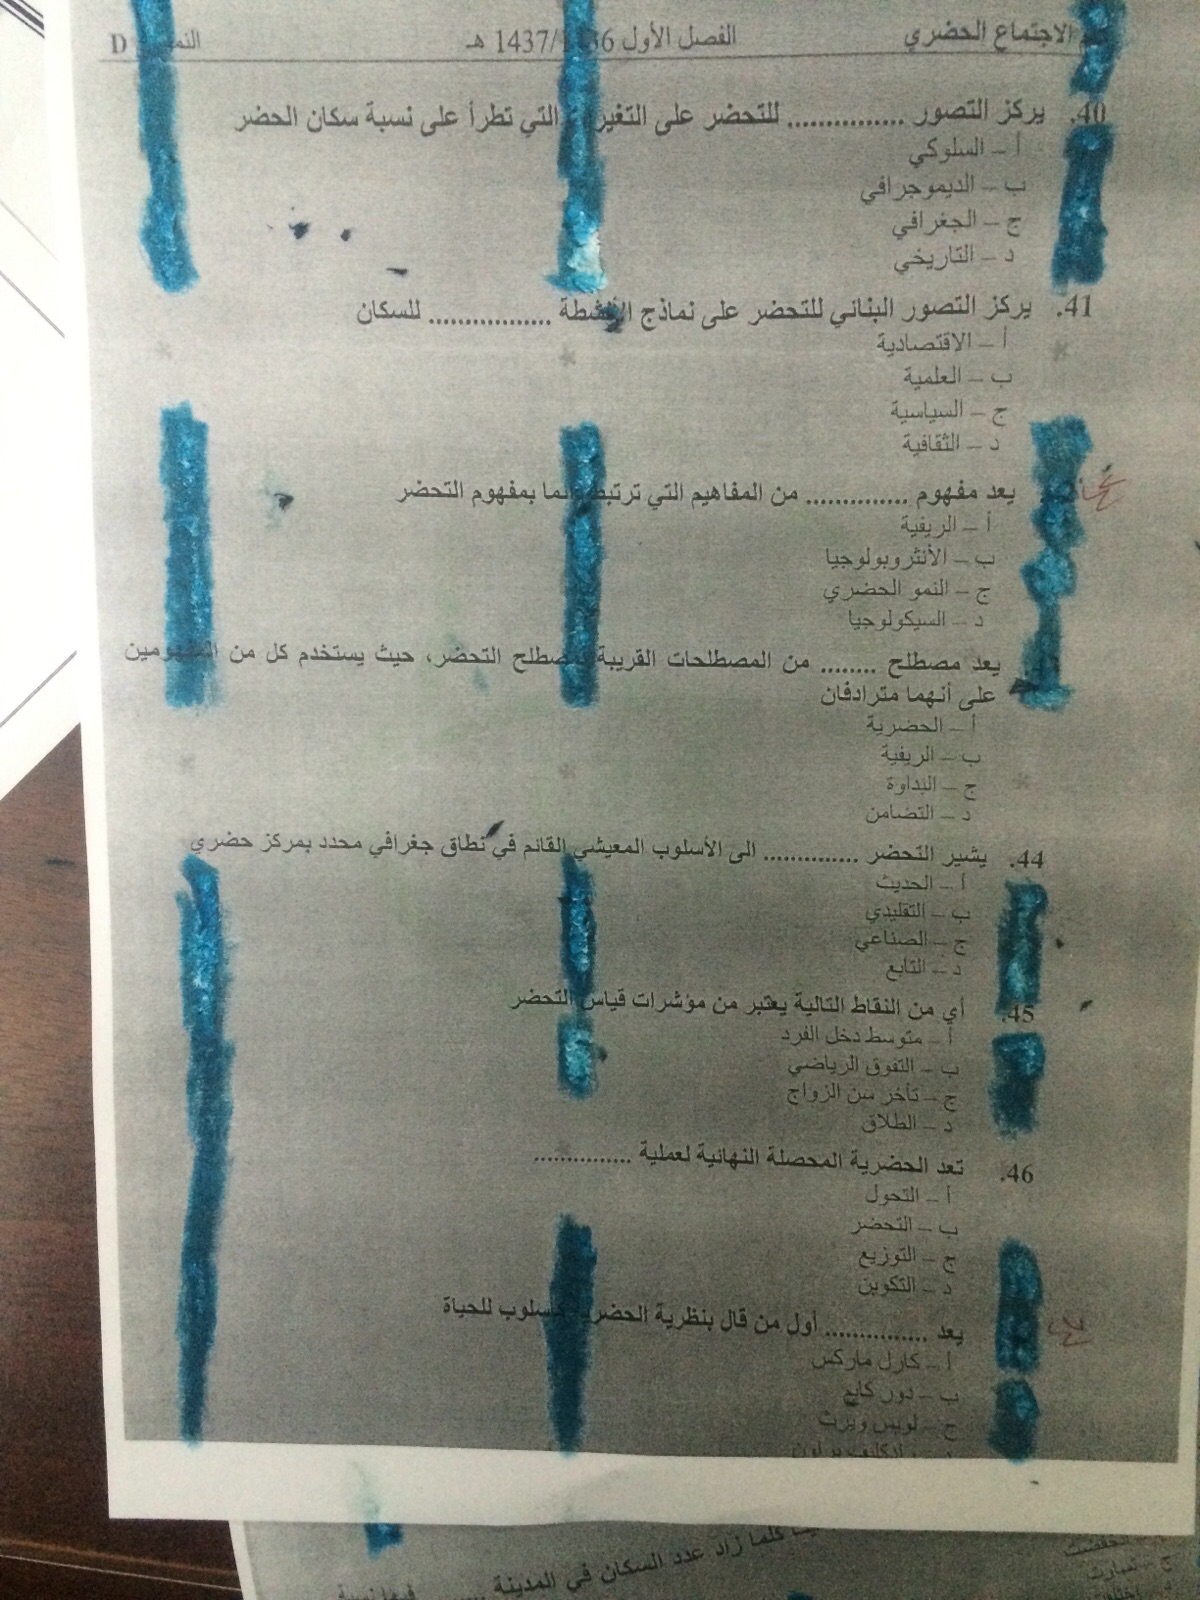 الاجتماع الحضري الفصل الأول 1437/1436 هـ D
40. يركز التصور ............... للتحضر على التغيرات التي تطرأ على نسبة سكان الحضر
أ – السلوكي
ب – الديموجرافي
ج – الجغرافي
د – التاريخي
41. يركز التصور البنائي للتحضر على نماذج الأنشطة ................ للسكان
أ – الاقتصادية
ب – العلمية
ج – السياسية
د – الثقافية
يعد مفهوم .............. من المفاهيم التي ترتبط دائما بمفهوم التحضر
أ – الريفية
ب – الأنثروبولوجيا
ج – النمو الحضري
د – السيكولوجيا
يعد مصطلح ........ من المصطلحات القريبة لمصطلح التحضر، حيث يستخدم كل من المفهومين
على أنهما مترادفان
أ – الحضرية
ب – الريفية
ج – البداوة
د – التضامن
44. يشير التحضر .............. الى الأسلوب المعيشي القائم في نطاق جغرافي محدد بمركز حضري
أ – الحديث
ب – التقليدي
ج – الصناعي
د – التابع
45. أي من النقاط التالية يعتبر من مؤشرات قياس التحضر
أ – متوسط دخل الفرد
ب – التفوق الرياضي
ج – تأخر سن الزواج
د – الطلاق
46. تعد الحضرية المحصلة النهائية لعملية ...............
أ – التحول
ب – التحضر
ج – التوزيع
د – التكوين
يعد ............... أول من قال بنظرية الحضرية كأسلوب للحياة
أ – كارل ماركس
ب – دور كايم
ج – لويس ويرث
د – رادكليف براون
كلما زاد عدد السكان في المدينة ........ فيما نسبة